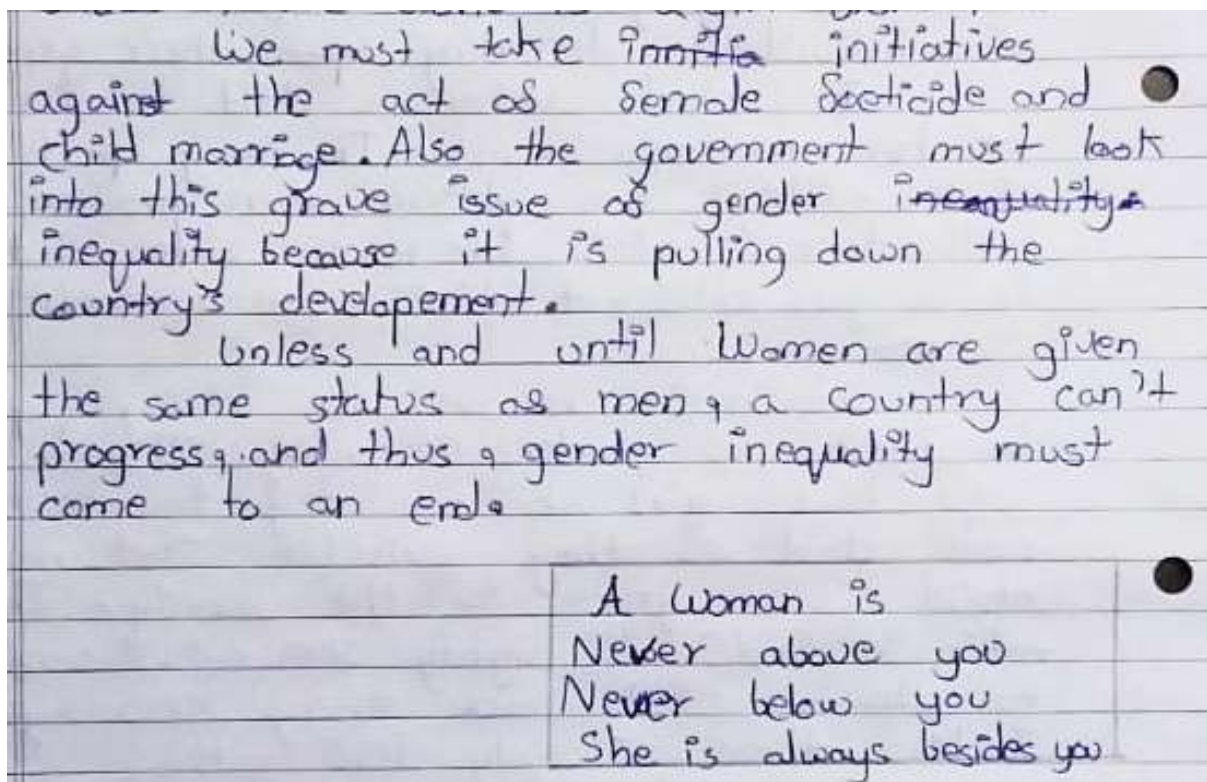 We must take initiatives
against the act of female foeticide and
child marriage. Also the government must look
into this grave issue of gender
inequality because it is pulling down the
country's developement.
Unless and until women are given
the same status as men, a country can't
progress, and thus, gender inequality must
come to an end.
A woman is
Never above you
Never below you
She is always besides you